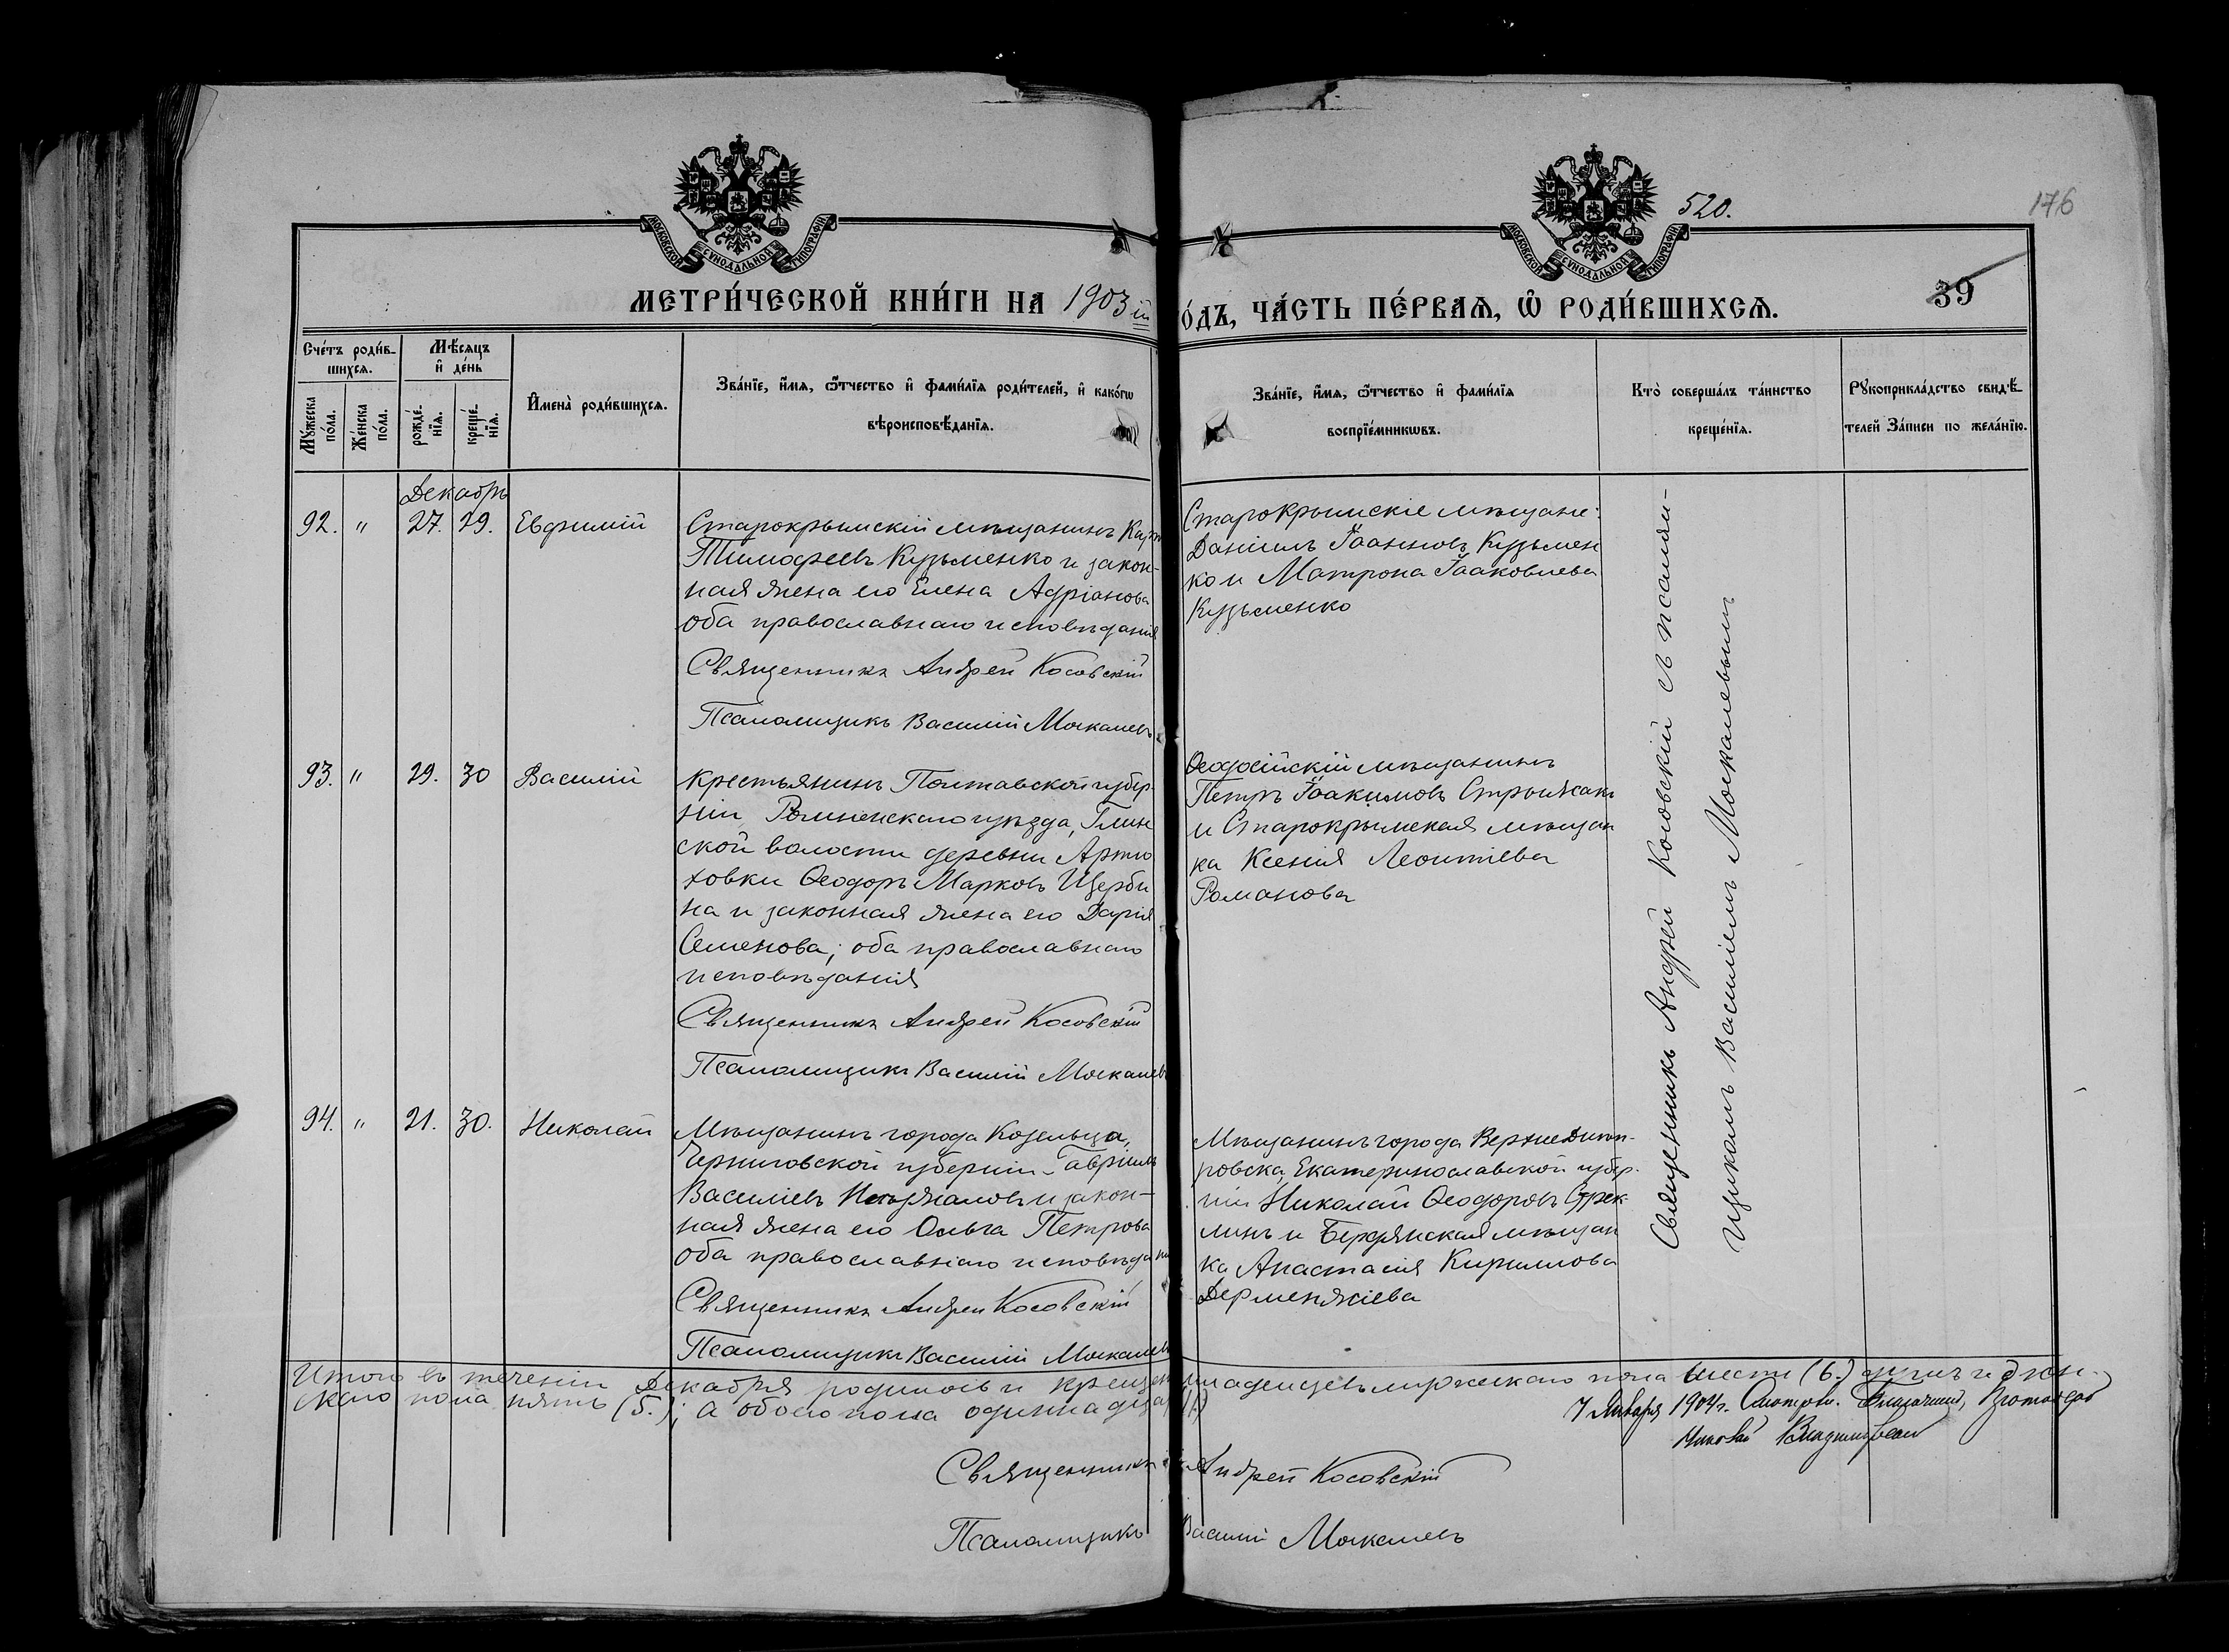 520.
176
МОСКОВСКОЙ СѴНОДАЛЬНОЙ ТИПОГРАФІИ
МОСКОВСКОЙ СѴНОДАЛЬНОЙ ТИПОГРАФІИ
39
МЕТРИ́ЧЕСКОЙ КНИ́ГИ НА 1903 й
О́ДЪ, ЧА́СТЬ ПЕ́РВАѦ, Ѽ РОДИ́ВШИХСѦ.
Сче́тъ роди́в-
шихсѧ.
Мѣ́сѧцъ
и҆ де́нь
Мꙋ́жеска
по́ла.
Же́нска
по́ла.
рожде́-
нїѧ.
креще́-
нїѧ.
И҆мена̀ роди́вшихсѧ.
Зва́нїе, и҆́мѧ, ѻ҆́тчество и҆ фами́лїѧ роди́телей, и҆ како́гѡ
вѣроисповѣ́данїѧ.
Зва́нїе, и҆́мѧ, ѻ҆́тчество и҆ фами́лїѧ
воспрїе́мникѡвъ.
Кто̀ соверша́лъ та́инство
креще́нїѧ.
Рꙋкоприкла́дство свидѣ́-
телей За́писи по жела́нїю.
Декабрь
92. " 27. 29. Евфимій
Старокрымскій мѣщанинъ
Тимофеевъ Кузьменко и закон-
ная жена его Елена Адріанова
оба православнаго исповѣданія
Священникъ Андрей Косовскій
Псаломщикъ Василій Москалевъ
Старокрымскіе мѣщане:
Даніилъ Іоанновъ Кузьмен
ко и Матрона Іаковлева
Кузьменко
93. " 29. 30 Василій
крестьянинъ Полтавской губер-
ніи Роменскаго уѣзда, Глин
ской волости деревни Артю
ховки Ѳеодоръ Марковъ Щерби
на и законная жена его Дарія
Семенова; оба православнаго
исповѣданія
Священникъ Андрей Косовскій
Псаломщикъ Василій Москалевъ
Ѳеодосійскій мѣщанинъ
Петръ Іоакимовъ Стрыжакъ
и Старокрымская мѣщан
ка Ксенія Леонтіева
Романова
94. " 21. 30. Николай
Мѣщанинъ города Козельца,
Черниговской губерніи Гавріилъ
Василіевъ и закон-
ная жена его Ольга Петрова
оба православнаго исповѣданія
Священникъ Андрей Косовскій
Псаломщикъ Василій Москалевъ
Мѣщанинъ города Верхнеднѣп-
ровска, Екатеринославской губер-
ніи Николай Ѳеодоровъ
линъ и Бердянская мѣщан
ка Анастасія Кириллова
Дерменжіева
Священникъ Андрей Косовскій съ псалом-
щикомъ Василіемъ Москалевымъ
Итого въ теченіи Декабря родилось и крещено младенцевъ мужескаго пола шесть (6.) жен-
скаго пола пять (5.); а обоего пола одиннадцать (11.)
7 Января 1904 г. Смотрѣлъ. Благочинный, Протоіерей
Николай Владимірскій
Священникъ Андрей Косовскій
Псаломщикъ Василій Москалевъ